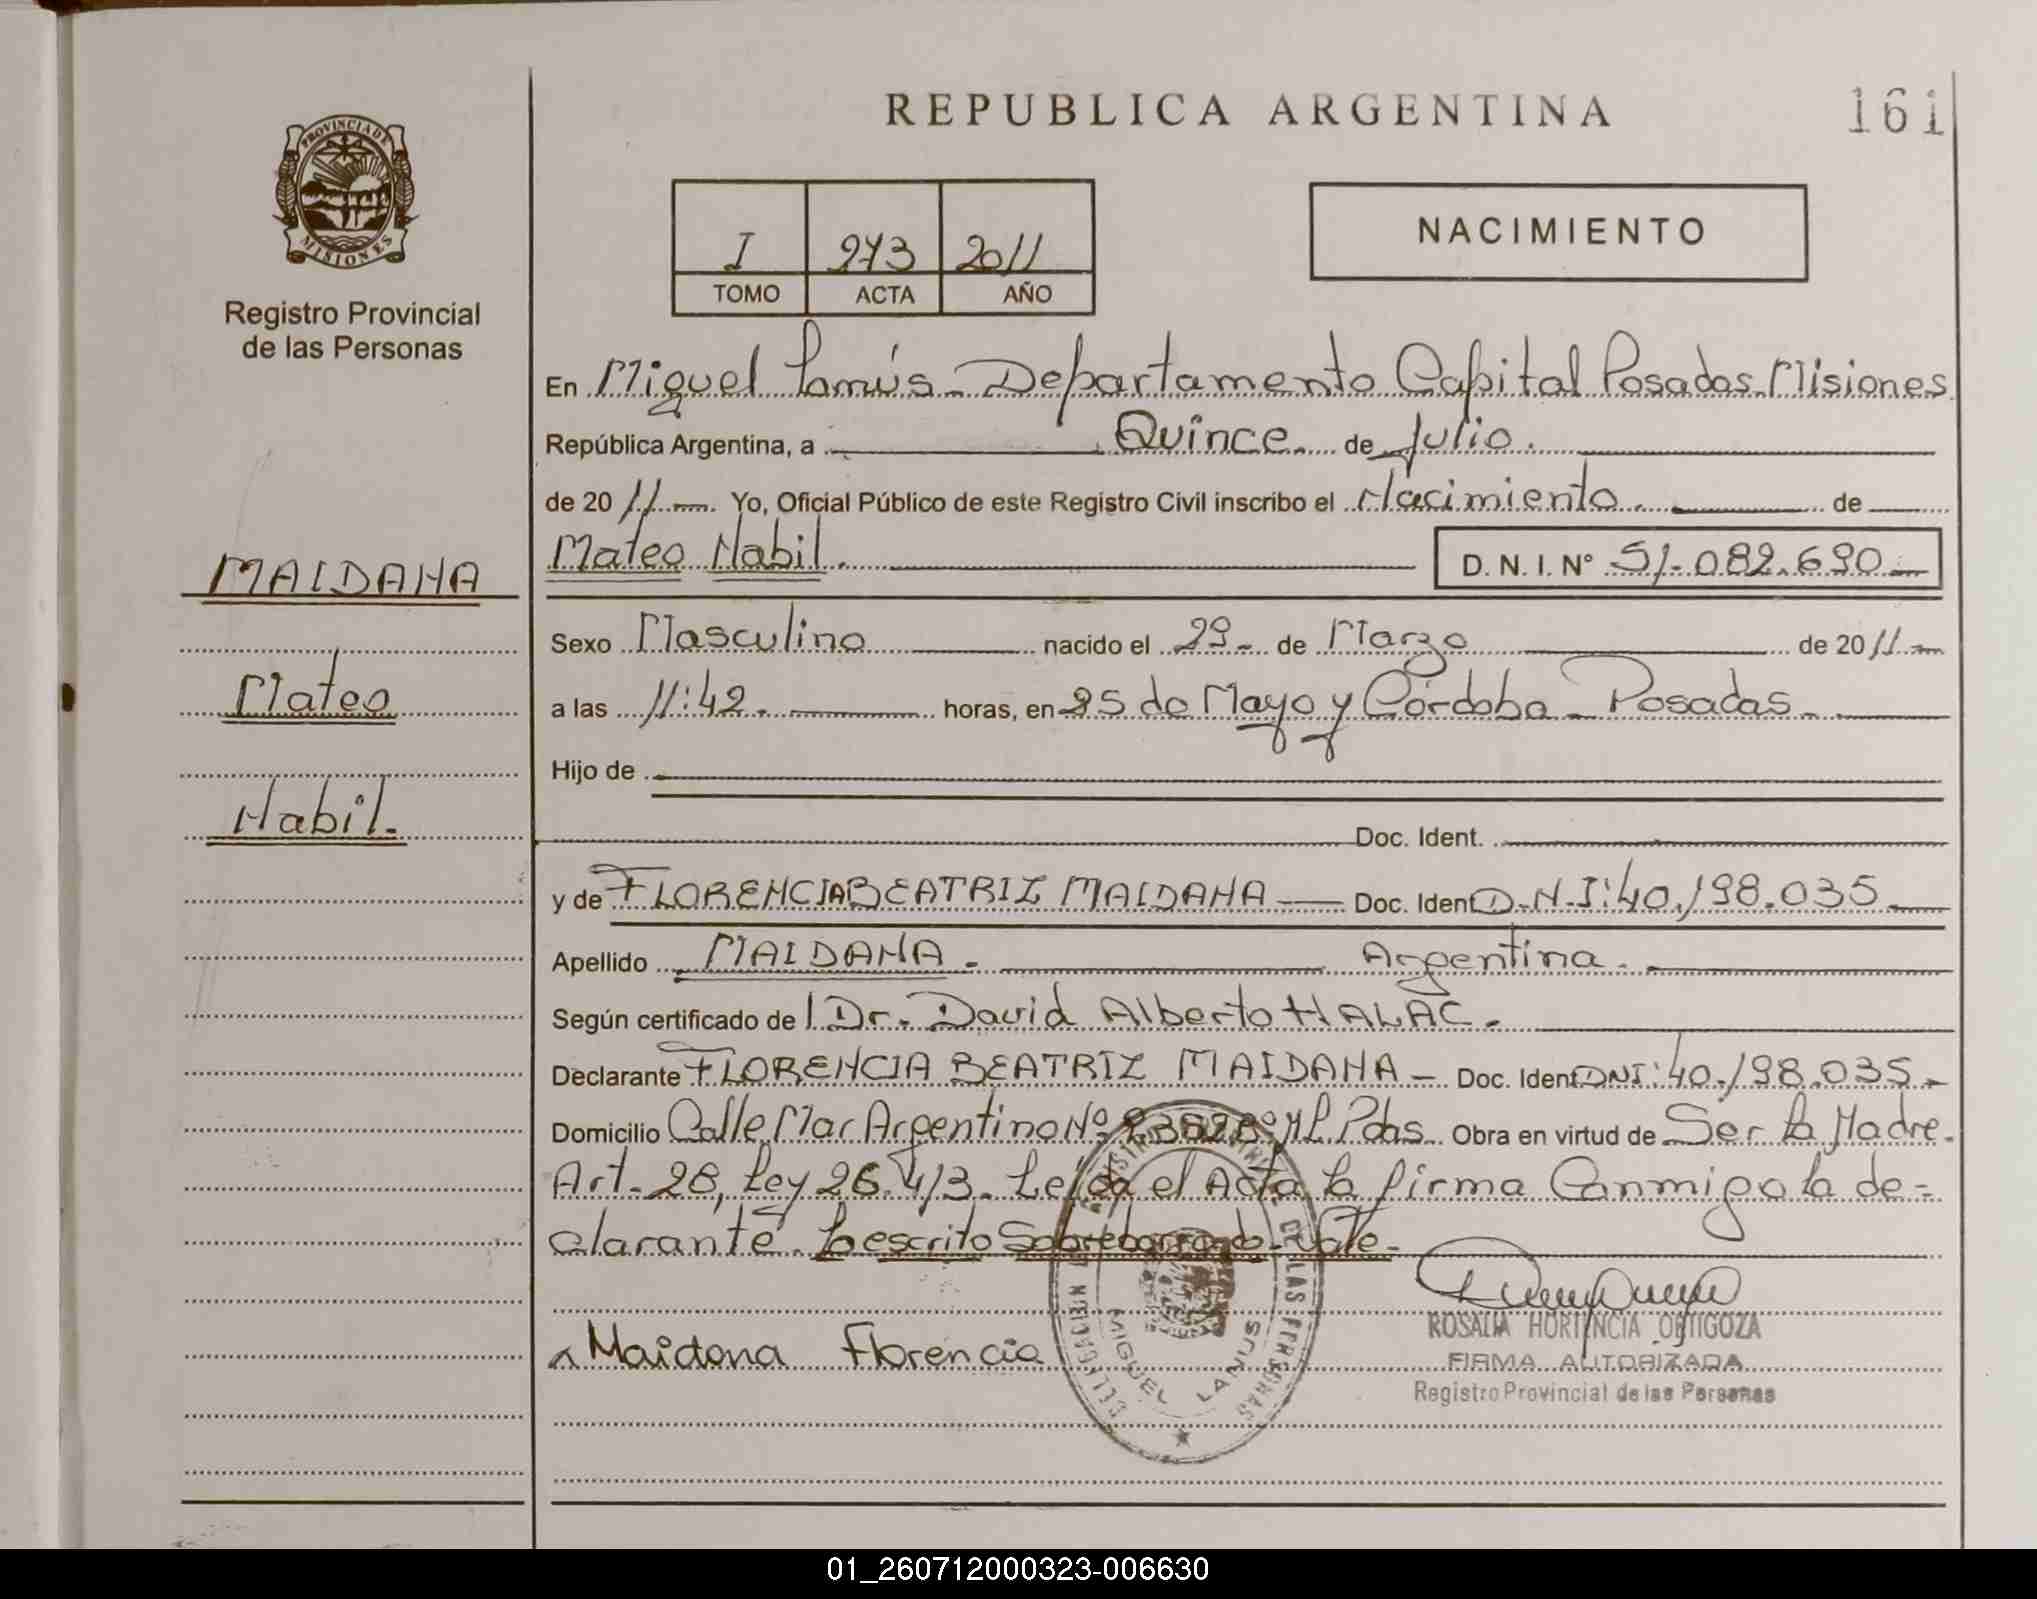 REPUBLICA ARGENTINA
161
PROVINCIA DE
MISIONES
Registro Provincial
de las Personas
I 273 2011
TOMO ACTA AÑO
NACIMIENTO
En Miguel Lanús - Departamento Capital Posadas-Misiones
República Argentina, a Quince de Julio.
de 2011 Yo, Oficial Público de este Registro Civil inscribo el Nacimiento. de
Mateo Nabil. D. N. I. Nº 51.082.690
MAIDANA
Mateo
Nabil.
Sexo Masculino nacido el 29- de Marzo de 2011
a las 11:42. horas, en 25 de Mayo y Córdoba - Posadas.
Hijo de
Doc. Ident.
y de FLORENCIA BEATRIZ MAIDANA Doc. Ident D.N.I: 40.198.035
Apellido MAIDANA. Argentina.
Según certificado del Dr. David Alberto HALAC.
Declarante FLORENCIA BEATRIZ MAIDANA - Doc. Ident DNI: 40.198.035-
Domicilio Calle Mar Argentino Nº Pdas. Obra en virtud de Ser la Madre.
Art. 28, Ley 26.413. Leída el Acta, la firma Conmigo la de-
clarante. Lo escrito Sobreborrado-Vale-
Maidana Florencia
DELEGACION
DE LAS PERSONAS
MIGUEL LANUS
ROSALIA HORTENCIA ORTIGOZA
FIRMA AUTORIZADA
Registro Provincial de las Personas
01_260712000323-006630